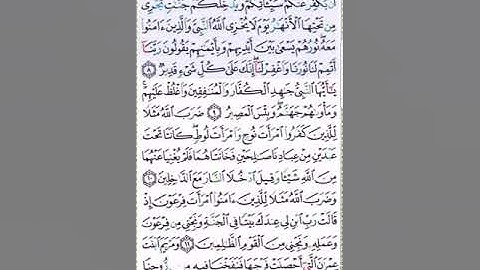 أَن يُكَفِّرَ عَنكُمْ سَيِّـَٔاتِكُمْ وَيُدْخِلَكُمْ جَنَّٰتٍ تَجْرِى
مِن تَحْتِهَا ٱلْأَنْهَٰرُ يَوْمَ لَا يُخْزِى ٱللَّهُ ٱلنَّبِىَّ وَٱلَّذِينَ ءَامَنُوا۟
مَعَهُۥ نُورُهُمْ يَسْعَىٰ بَيْنَ أَيْدِيهِمْ وَبِأَيْمَٰنِهِمْ يَقُولُونَ رَبَّنَآ
أَتْمِمْ لَنَا نُورَنَا وَٱغْفِرْ لَنَآ إِنَّكَ عَلَىٰ كُلِّ شَىْءٍ قَدِيرٌ ٨
يَٰٓأَيُّهَا ٱلنَّبِىُّ جَٰهِدِ ٱلْكُفَّارَ وَٱلْمُنَٰفِقِينَ وَٱغْلُظْ عَلَيْهِمْ
وَمَأْوَىٰهُمْ جَهَنَّمُ وَبِئْسَ ٱلْمَصِيرُ ٩ ضَرَبَ ٱللَّهُ مَثَلًا
لِّلَّذِينَ كَفَرُوا۟ ٱمْرَأَتَ نُوحٍ وَٱمْرَأَتَ لُوطٍ كَانَتَا تَحْتَ
عَبْدَيْنِ مِنْ عِبَادِنَا صَٰلِحَيْنِ فَخَانَتَاهُمَا فَلَمْ يُغْنِيَا عَنْهُمَا
مِنَ ٱللَّهِ شَيْـًٔا وَقِيلَ ٱدْخُلَا ٱلنَّارَ مَعَ ٱلدَّٰخِلِينَ ١٠
وَضَرَبَ ٱللَّهُ مَثَلًا لِّلَّذِينَ ءَامَنُوا۟ ٱمْرَأَتَ فِرْعَوْنَ إِذْ
قَالَتْ رَبِّ ٱبْنِ لِى عِندَكَ بَيْتًا فِى ٱلْجَنَّةِ وَنَجِّنِى مِن فِرْعَوْنَ
وَعَمَلِهِۦ وَنَجِّنِى مِنَ ٱلْقَوْمِ ٱلظَّٰلِمِينَ ١١ وَمَرْيَمَ ٱبْنَتَ
عِمْرَٰنَ ٱلَّتِىٓ أَحْصَنَتْ فَرْجَهَا فَنَفَخْنَا فِيهِ مِن رُّوحِنَا